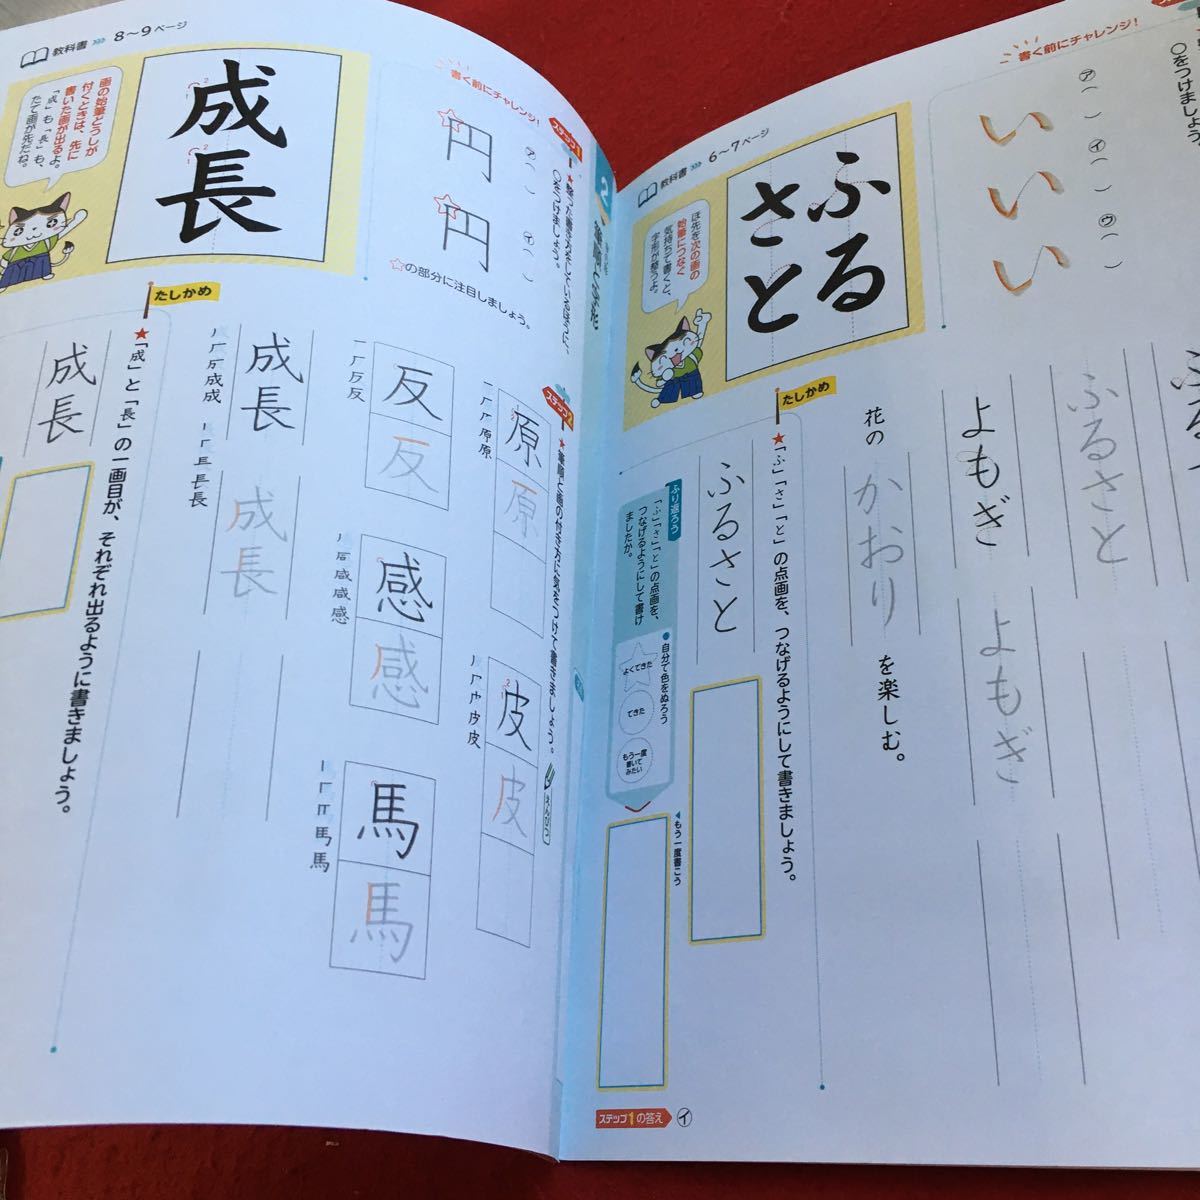 ○をつけましょう。
書く前にチャレンジ！
㋐（　）
㋑（　）
㋒（　）
い
い
い
教科書 6〜7ページ
ふる
さと
ほ先を次の画の
始筆につなぐ
気持ちで書くと、
字形が整うよ。
ふるさと
よもぎ
よもぎ
花の
かおり
を楽しむ。
たしかめ
★「ふ」「さ」「と」の点画を、つなげるようにして書きましょう。
ふるさと
ふり返ろう
「ふ」「さ」「と」の点画を、
つなげるようにして書け
ましたか。
●自分で色をぬろう
よくできた
できた
もう一度
書いて
みたい
◀もう一度書こう
ステップ1の答え ㋑
2
ステップ1
★整った書き方をしているほうに、
○をつけましょう。
書く前にチャレンジ！
円
円
㋐（　）
㋑（　）
☆の部分に注目しましょう。
教科書 8〜9ページ
成長
画の始筆どうしが
付くときは、先に
書いた画が出るよ。
「成」も「長」も、
たて画が先だね。
ステップ2
★筆順と画の付き方に気をつけて書きましょう。
えんぴつ
原
原
皮
皮
反
反
感
感
馬
馬
成長
成長
たしかめ
★「成」と「長」の一画目が、それぞれ出るように書きましょう。
成長